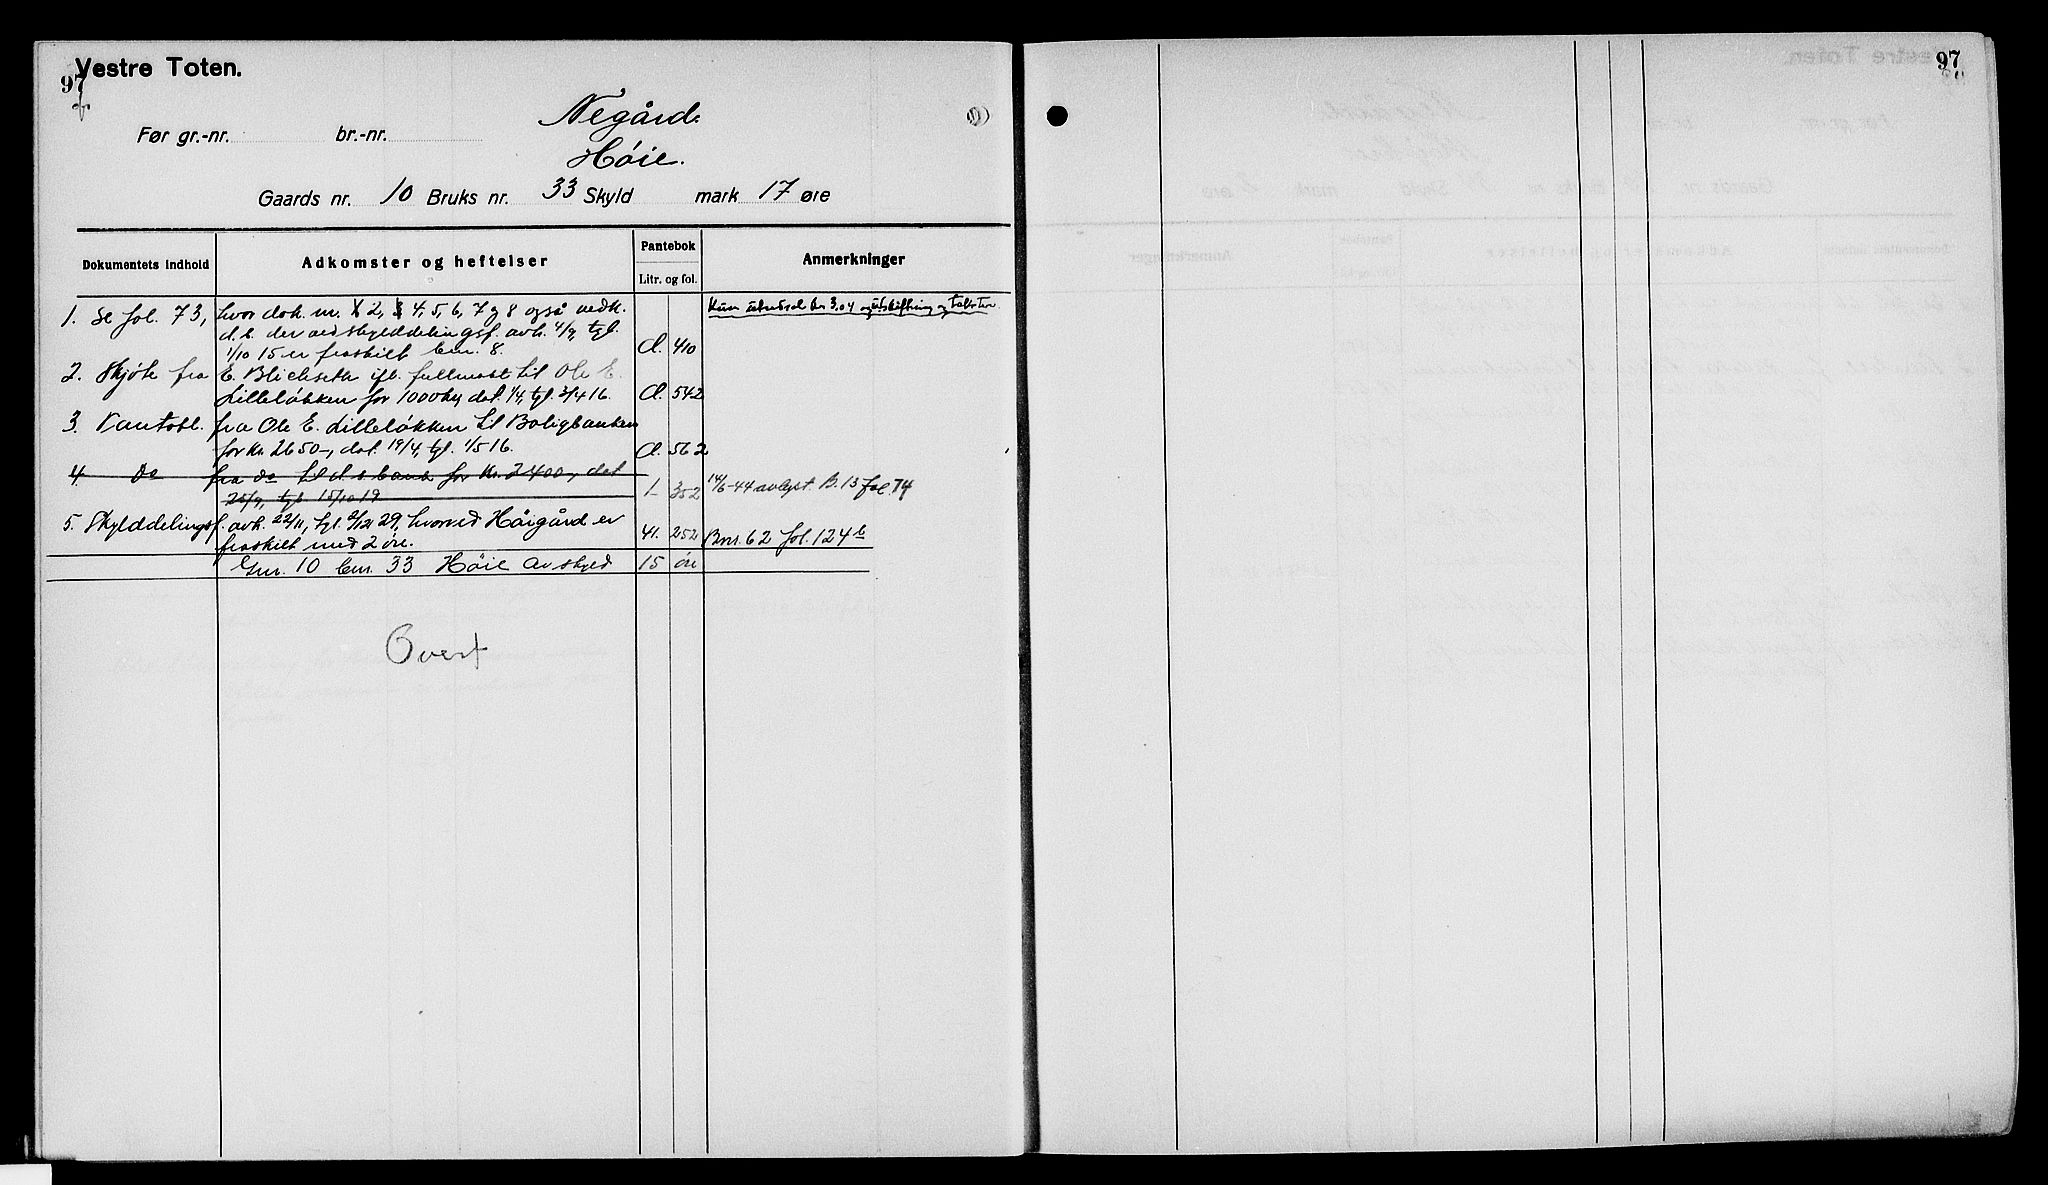 Vestre Toten.
97
Før gr.-nr. br.-nr.
Negård.
Høie.
Gaards nr. 10 Bruks nr. 33 Skyld mark 17 øre
Dokumentets indhold
Adkomster og heftelser
Pantebok
Litr. og fol.
Anmerkninger
1. Se fol. 73, hvor dok. nr. 1 2, 3 4, 5, 6, 7 og 8 også vedk.
d. b. der ved skylddelingsf. avh. 4/9, tgl.
1/10 15 er fraskilt bnr. 8. Cl. 410
2. Skjøte fra E. Blichseth ifl. fullmakt til Ole E.
Lilleløkken for 1000 kr, dat. 1/4, tgl. 3/4 16. Cl. 542
3. Pantobl. fra Ole E. Lilleløkken til Boligbanken
for kr. 2650-, dat. 19/4, tgl. 1/5 16. Cl. 562
4. Do fra do til d. s. bank for kr. 2400-, dat
25/9, tgl. 15/10 19 1- 352 14/6-44 avlyst. B. 13 fol. 74
5. Skylddelingsf. avh. 22/11, tgl. 2/12 29, hvorved Høigård er
fraskilt med 2 øre. 41. 252 Bnr. 62 fol. 124 b
Gnr. 10 bnr. 33 Høie av skyld 15 øre
Overf
97